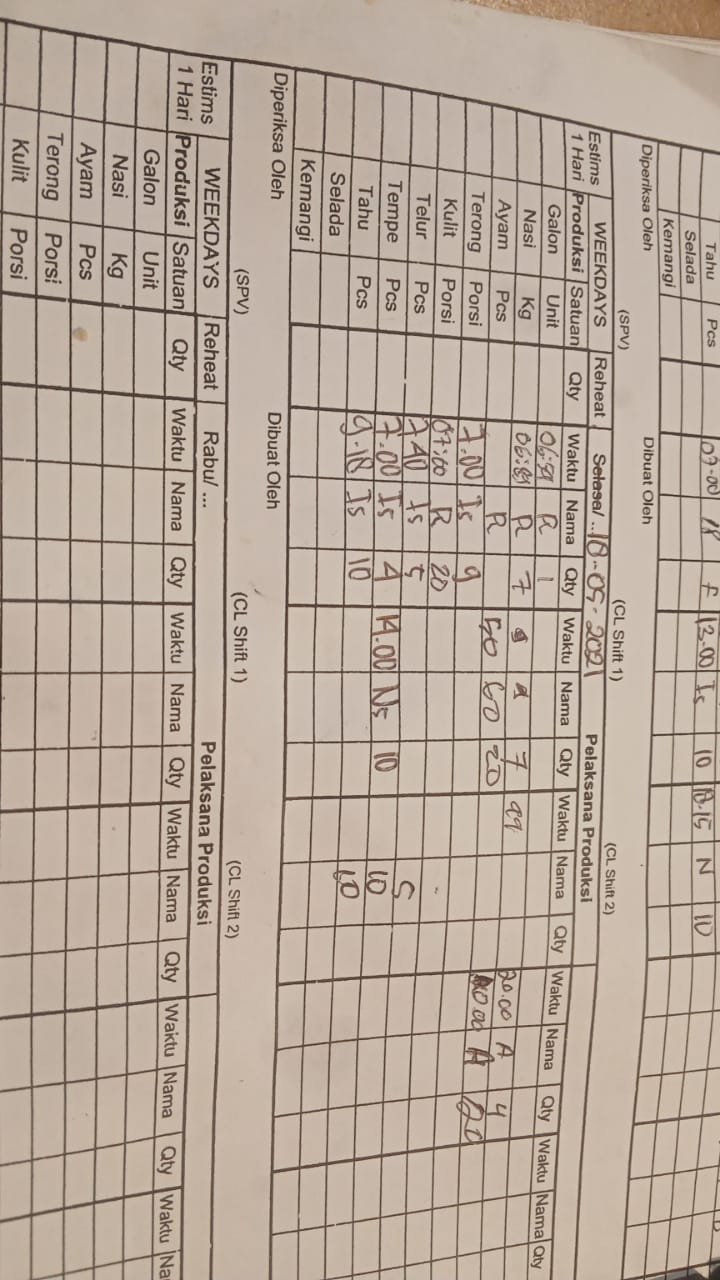 Tahu Pcs 07.00 13.00 Is 10 18.15 N 10
Selada
Kemangi
Diperiksa Oleh Dibuat Oleh
(SPV) (CL Shift 1) (CL Shift 2)
Estims WEEKDAYS Reheat Selasa/ ... Pelaksana Produksi
1 Hari Produksi Satuan Qty Waktu Nama Qty Waktu Nama Qty Waktu Nama Qty Waktu Nama Qty Waktu Nama Qty
Galon Unit R 1
Nasi Kg R 7 7
Ayam Pcs R 50 60 20 20.00 A 4
Terong Porsi 7.00 Is 9 A 20
Kulit Porsi 07:00 R 20
Telur Pcs 7.40 Is 5
Tempe Pcs 7.00 Is 4 14.00 Ns 10 10
Tahu Pcs 9.18 Is 10 10
Selada
Kemangi
Diperiksa Oleh Dibuat Oleh
(SPV) (CL Shift 1) (CL Shift 2)
Estims WEEKDAYS Reheat Rabu/ ... Pelaksana Produksi
1 Hari Produksi Satuan Qty Waktu Nama Qty Waktu Nama Qty Waktu Nama Qty Waktu Nama Qty Waktu Na
Galon Unit
Nasi Kg
Ayam Pcs
Terong Porsi
Kulit Porsi